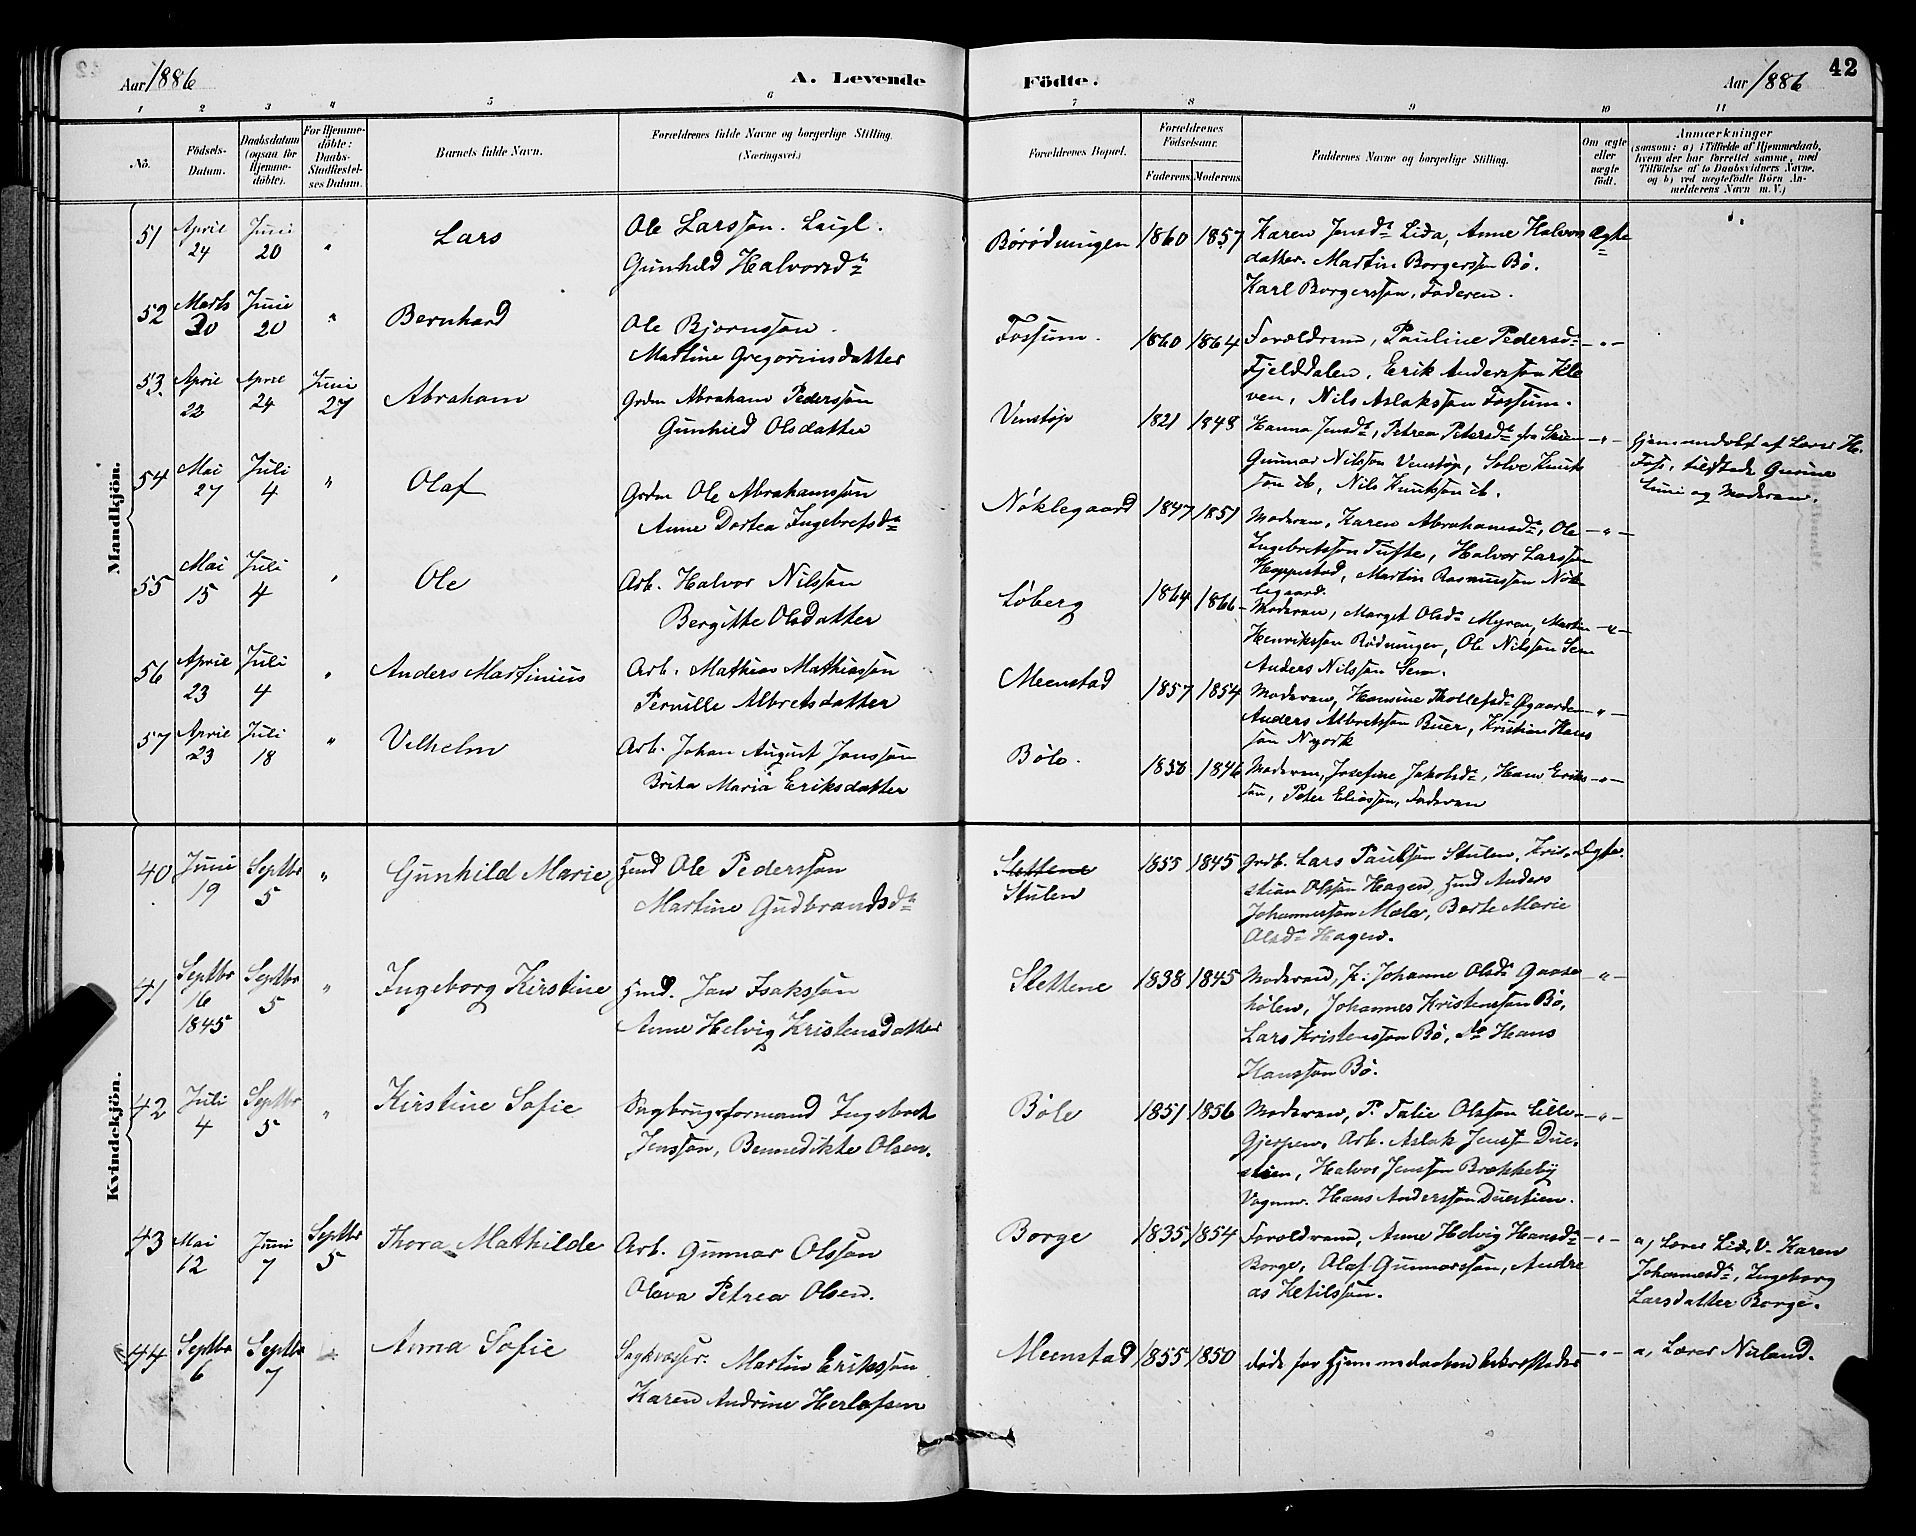 Aar 1886
A. Levende
Födte.
Aar 1886
42
1 2 3 4 5 6 7 8 9 10 11
No.
Födsels-Datum.
Daabsdatum (ogsaa for Hjemme-döbte).
For Hjemme-döbte: Daabs-Stadfæstel-ses Datum.
Barnets fulde Navn.
Forældrenes fulde Navne og borgerlige Stilling. (Næringsvei.)
Forældrenes Bopæl.
Forældrenes Födselsaar.
Faderens. Moderens.
Faddernes Navne og borgerlige Stilling.
Om ægte eller uægte født.
Anmærkninger
(saasom: a) i Tilfælde af Hjemmedaab,
hvem der har forrettet samme, med
Tilføielse af to Daabsvidners Navne,
og b) ved uægtefødte Börn An-
melderens Navn m. V.)
Mandkjön.
51 April 24 Juni 20 " Lars
Ole Larsson. Leigl.
Gunhild Halvorsd.
Børødningen 1860 1857
Karen Jensd. Lida, Anne Halvors
datter. Martin Borgersson Bø.
Karl Borgersson, Faderen.
Ægte
52 Marts 30 Juni 20 " Bernhard
Ole Bjørnsson.
Martine Gregoriusdatter
Fossum. 1860 1864
Forældrene, Pauline Pedersd.
Fjelddalen, Erik Andersson Kle
ven, Nils Aslaksson Fossum.
53. April 22 April 24 Juni 27 Abraham
Grdm Abraham Pedersson
Gunhild Olsdatter
Venstøp 1821 1848
Hanna Jensd., Petrea Petersd. fra Skien
Gunnar Nilsson Venstøp, Solve Knuts
son ib, Nils Knutsson ib.
Hjemmedøbt af Lærer
og Moderen.
54 Mai 27 Juli 4 " Olaf
Grdm Ole Abrahamsson
Anne Dortea Ingebretsd.
Nøklegaard 1847 1851
Moderen, Karen Abrahamsd., Ole
Ingebretsson Tufte, Halvor Larsson
Hoppestad, Martin Rasmusson Nøk
legaard.
55 Mai 15 Juli 4 " Ole
Arb. Halvor Nilsson
Bergitte Olsdatter
Løberg 1864 1866
Moderen, Marget Olsd. Myren, Martin
Henriksson Rødningen, Ole Nilsson Sem
Anders Nilsson Sem.
56 April 23 Juli 4 " Anders Martinius
Arb. Mathias Mathiasson
Pernille Albretsdatter
Meenstad 1857 1854
Moderen, Hansine Tollefsd. Øgaarden
Anders Albretsson Buer, Kristian Hans
son
57 April 23 Juli 18 " Vilhelm
Arb. Johan August Jonsson
Brita Maria Eriksdatter
Bøle. 1850 1846
Moderen, Josefine Jakobsd., Hans Eriks
son, Peter Eliasson, Faderen
Kvindekjön.
40 Juni 19 Septbr 5 " Gunhild Marie
Hmd Ole Pedersson
Martine Gudbrandsd.
Slettene
Stulen 1855 1845
Grdb. Lars Paulson Stulen, Kris-
stian Olsson Hagen, Hmd Anders
Johannesson Mæla, Berte Marie
Olsd. Hagen.
Ægte.
41 Septbr 16 1845 Septbr 5 " Ingeborg Kirstine
Hmd. Jan Isaksson
Anne Helvig Kristensdatter
Slettene 1838 1845
Moderen, K. Johanne Olsd. Gaase
hølen, Johannes Kristensson Bø,
Lars Kristensson Bø, Hans
Hansson Bø.
42 Juli 4 Septbr 5 " Kirstine Sofie
Sagbrugsformand Ingebret
Jensson, Bennedikte Olsen.
Bøle 1851 1856
Moderen, P. Talie Olsson Lille-
Gjerpen, Arb. Aslak Jenss. Due-
stien, Halvor Jensson Brækkeby
Vognm. Hans Andersson Duestien.
43 Mai 12 Juni 7 Septbr 5 Thora Mathilde
Arb. Gunnar Olsson
Olava Petrea Olsen.
Borge 1835 1854
Forældrene, Anne Helvig Hansd.
Borge, Olaf Gunnarsson, Andre
as Ketilsson.
a, Lærer Lid, V. Karen
Johannesd., Ingeborg
Larsdatter Borge.
44 Septbr 6 Septbr 7 Anna Sofie
Martin Eriksson
Karen Andrine Herlofsen
Meenstad 1855 1850
døde før Hjemmedaaben bekræftedes
a, Lærer Nuland.